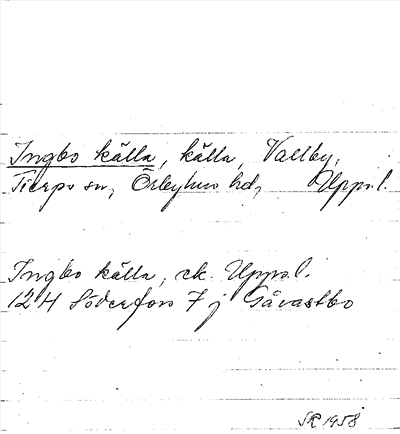 Ingbo källa, källa, Vallby,
Tierps sn, Örbyhus hd, Upps.l.
Ingbo källa, ek. Upps.l.
12 H Söderfors 7 j Gåvastbo
SR 1958